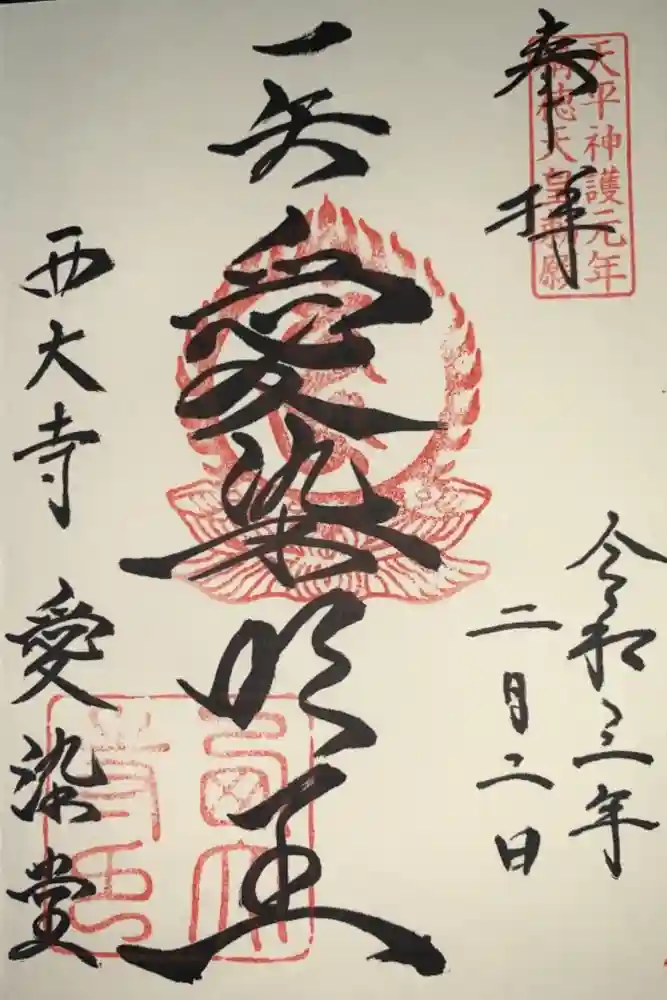 奉拝
天平神護元年
稱徳天皇勅願
令和三年
二月二日
一矢愛染明王
西大寺 愛染堂
西大寺印